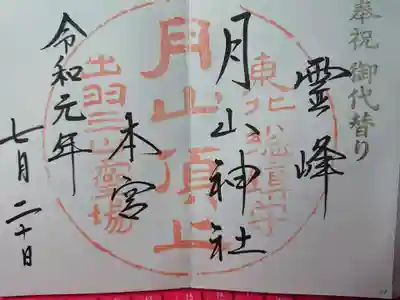 奉祝 御代替り
霊峰
月山神社
本宮
令和元年
七月二十日
東北総鎮守
月山頂上
出羽三山霊場